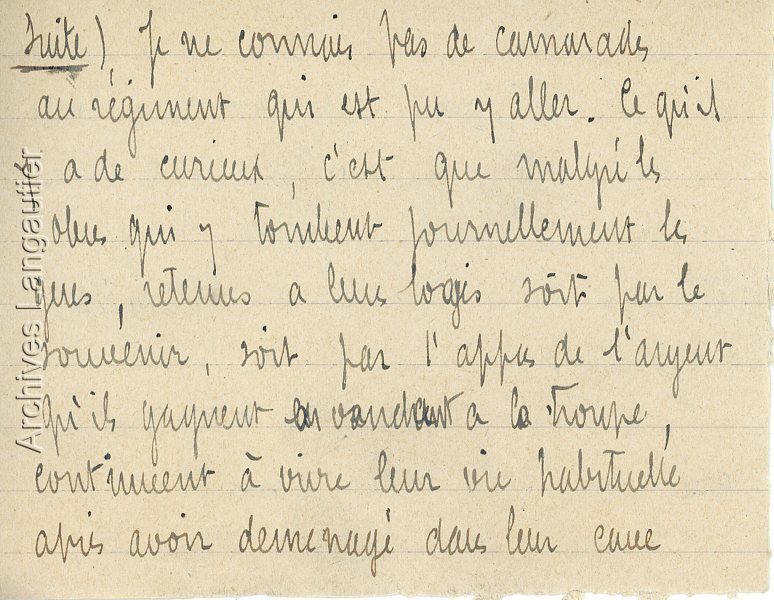 Suite) Je ne connais pas de camarades
au régiment qui est pu y aller. Ce qu'il
a de curieux, c'est que malgré les
obus qui y tombent journellement les
gens, retenus a leurs logis soit par le
souvenir, soit par l'appas de l'argent
qu'ils gagnent en vendant a la troupe,
continuent à vivre leur vie habituelle
après avoir demenagé dans leur cave
Archives Langautier